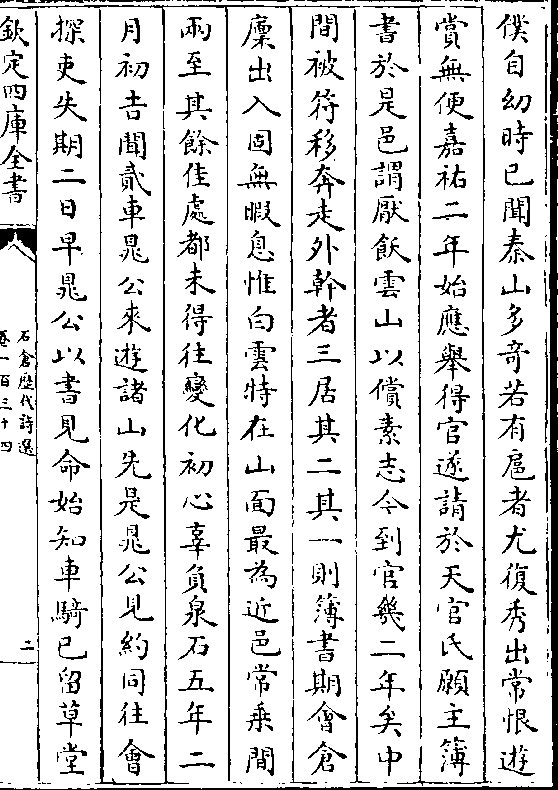 僕自幼時已聞泰山多奇若有扈者尤復秀出常恨遊
賞無便嘉祐二年始應舉得官遂請於天官氏願主簿
書於是邑謂厭飫雲山以償素志今到官幾二年矣中
間被符移奔走外幹者三居其二其一則簿書期會倉
廩出入固無暇息惟白雲特在山面最為近邑常乗間
兩至其餘佳處都未得往變化初心辜負泉石五年二
月初吉聞貳車晁公來遊諸山先是晁公見約同往會
探吏失期二日早晁公以書見命始知車騎已留草堂
欽定四庫全書
石倉歴代詩選
卷一百三十四
二